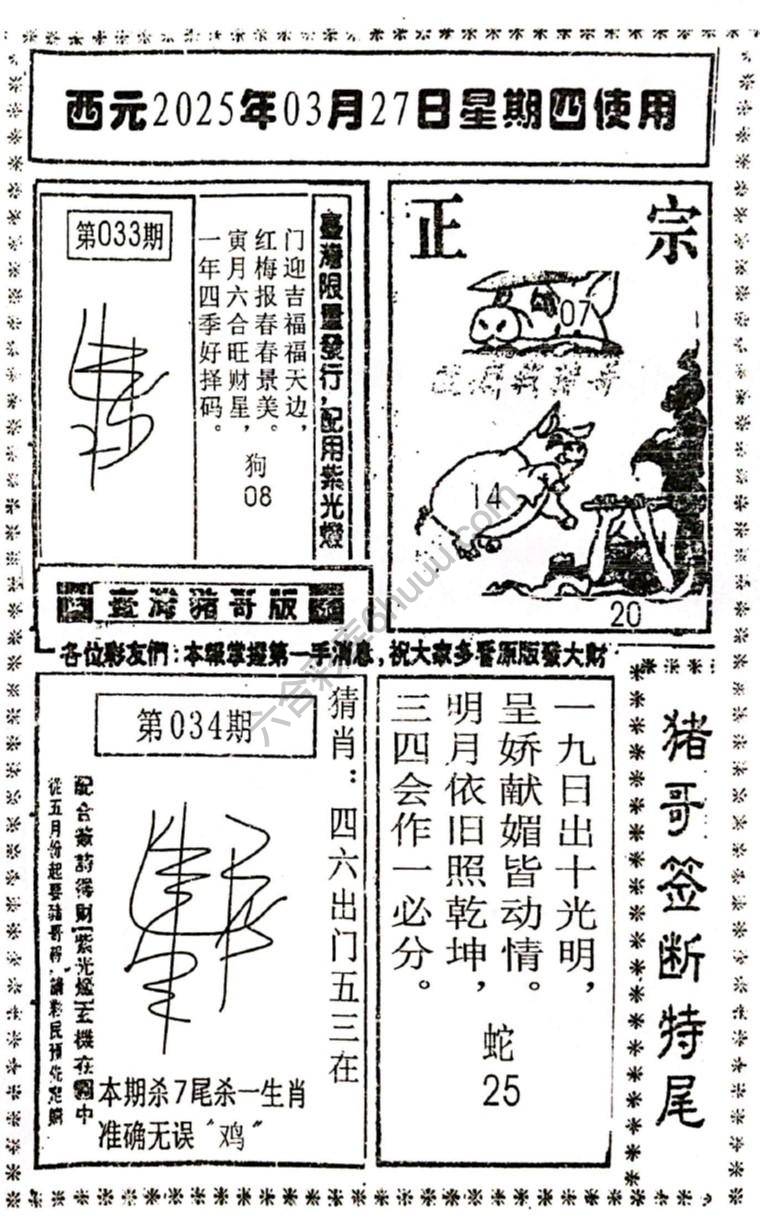 西元2025年03月27日星期四使用
第033期
臺灣限量發行,配用紫光燈
门迎吉福福天边,
红梅报春春景美。
寅月六合旺财星,
一年四季好择码。
狗
08
正宗
07
14
20
臺灣豬哥版
各位彩友們:本報掌握第一手消息,祝大家多看原版發大財
第034期
猜肖:四六出门五三在
配合簽詩得財
紫光燈玄機在圖中
本期杀7尾杀一生肖
准确无误“鸡”
一九日出十光明,
呈娇献媚皆动情。
明月依旧照乾坤,
三四会作一必分。
蛇
25
猪哥签断特尾
六合彩库6huuu.com